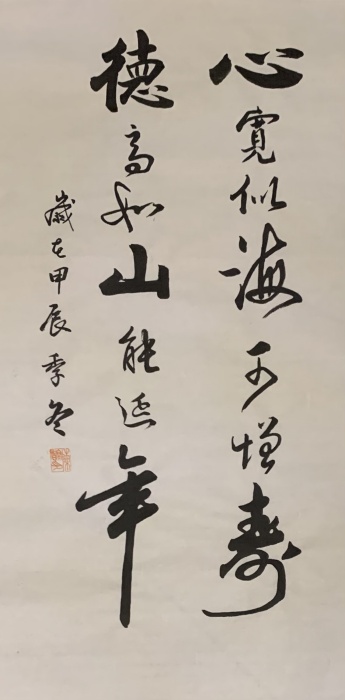 心寬似海可增壽
德高如山能延年
歲在甲辰季冬